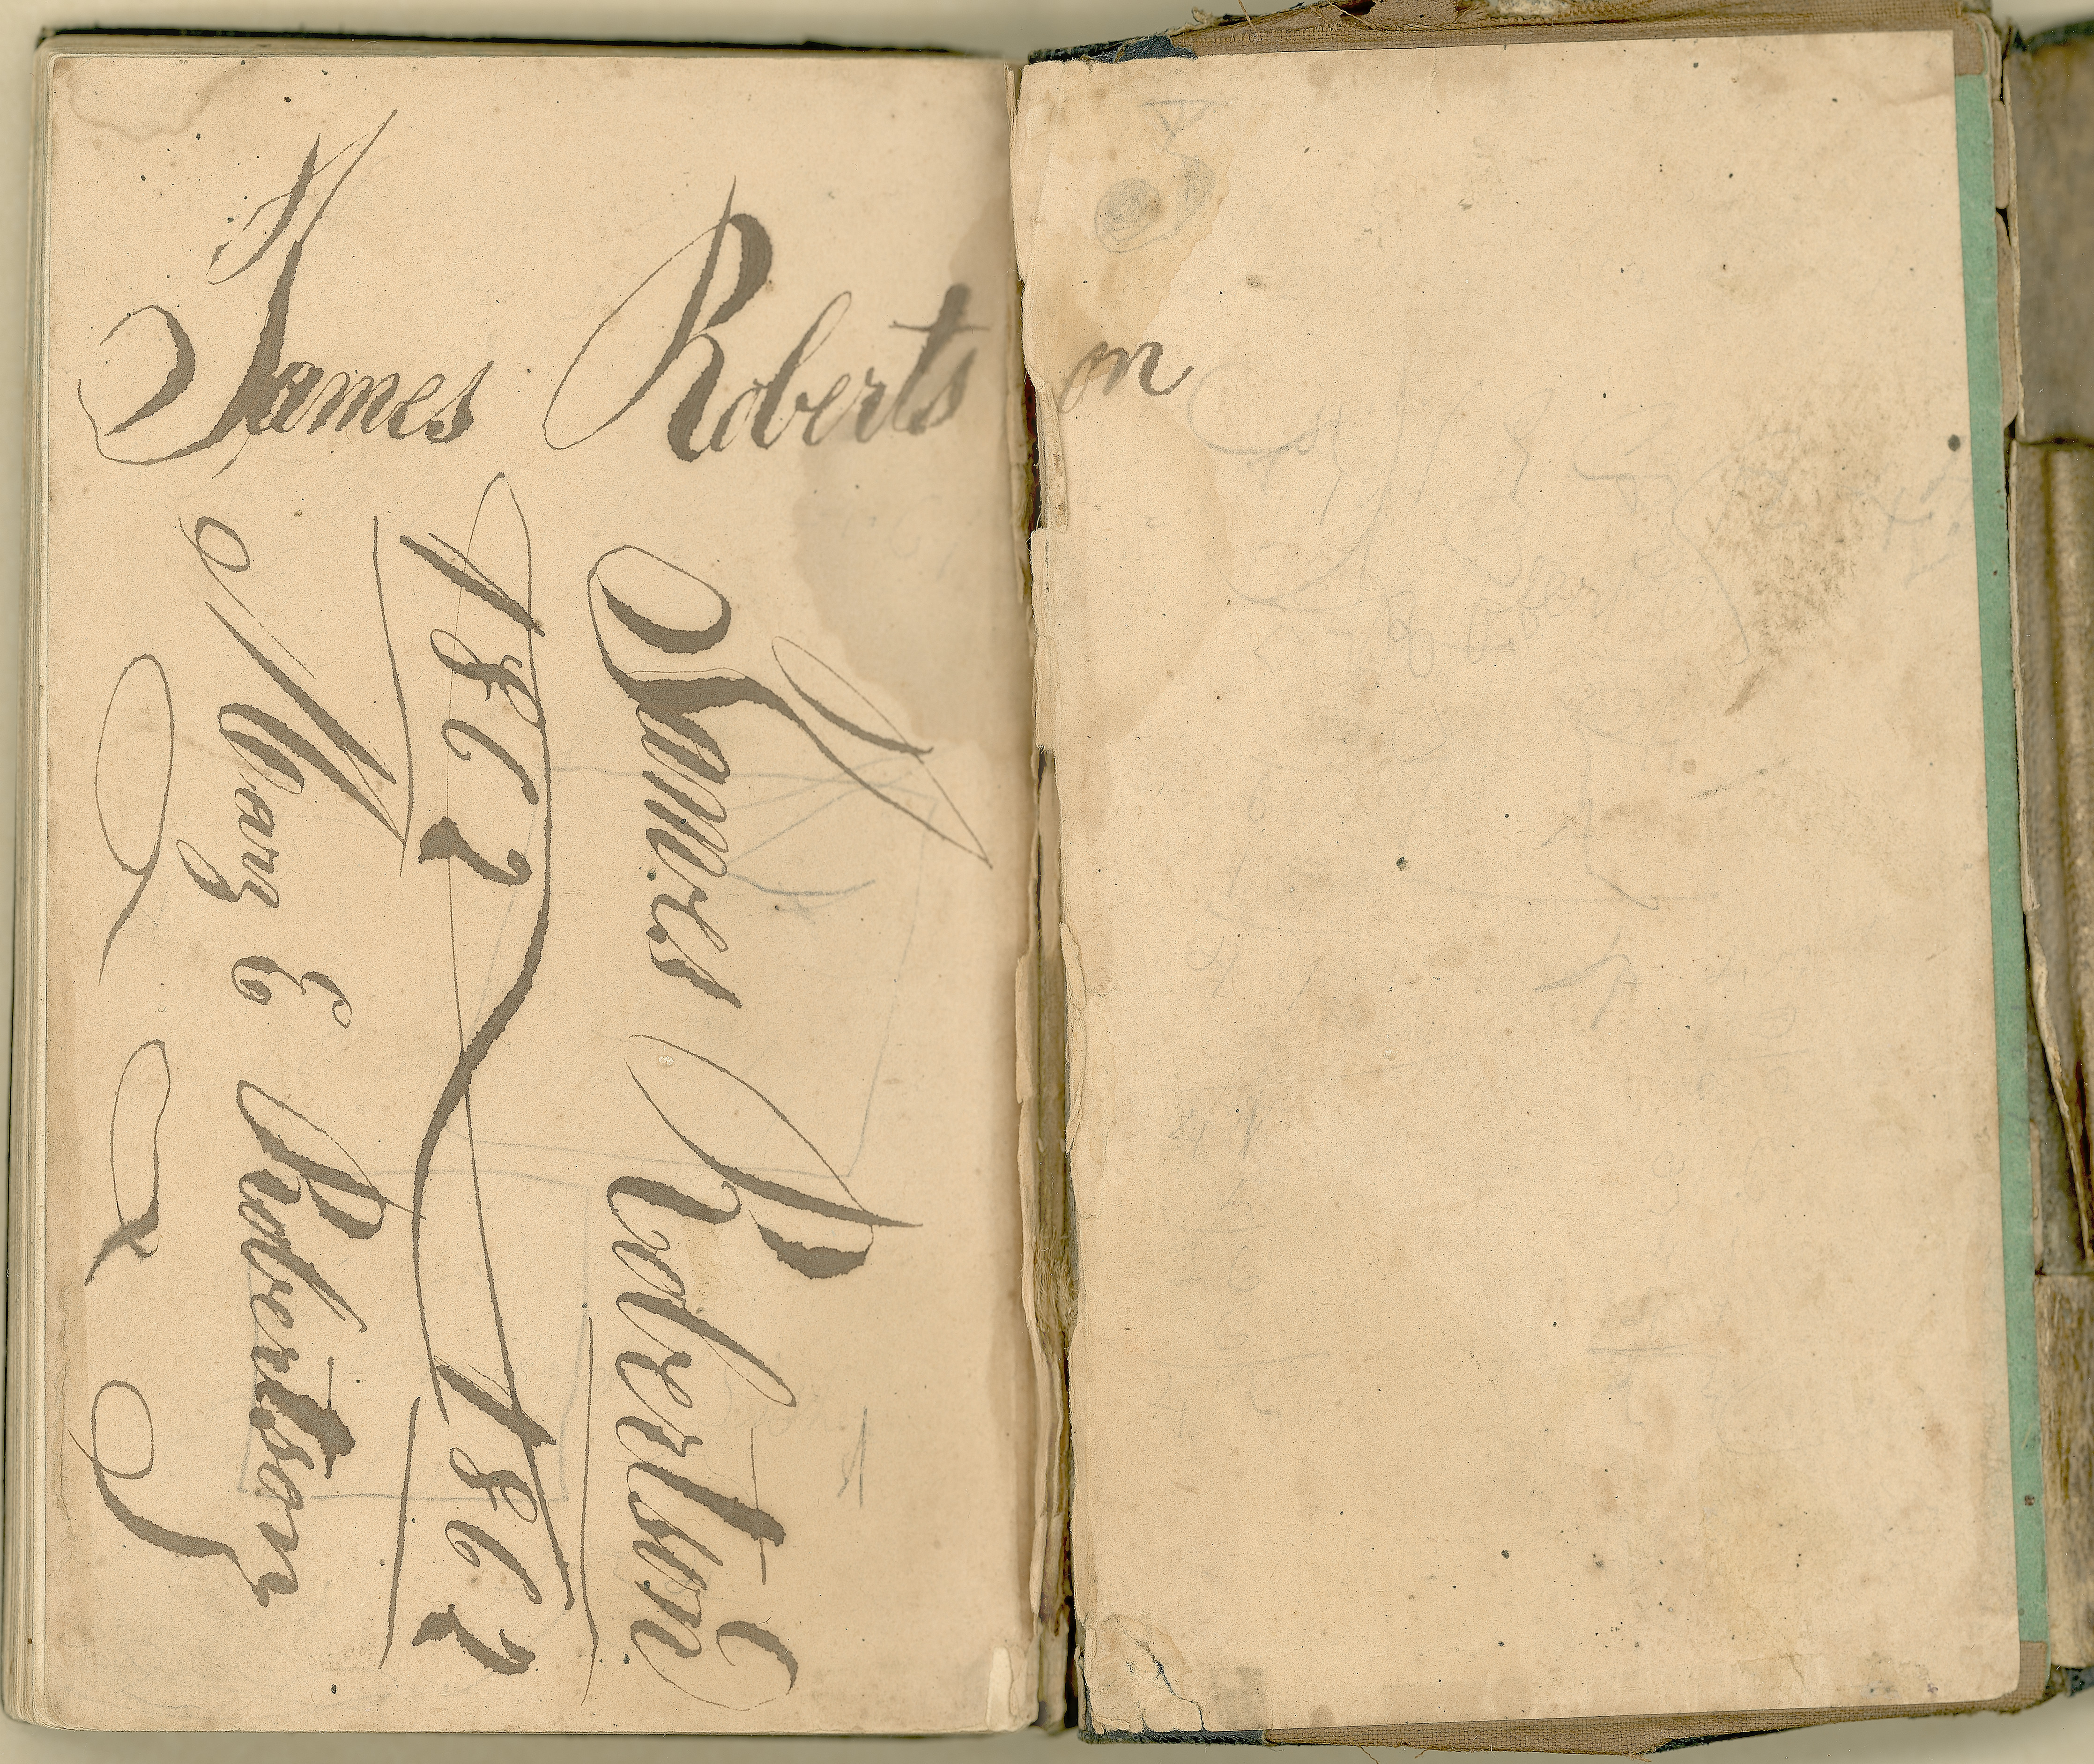 James Robertson
James Robertson
1862 1862
Mary E Robertson